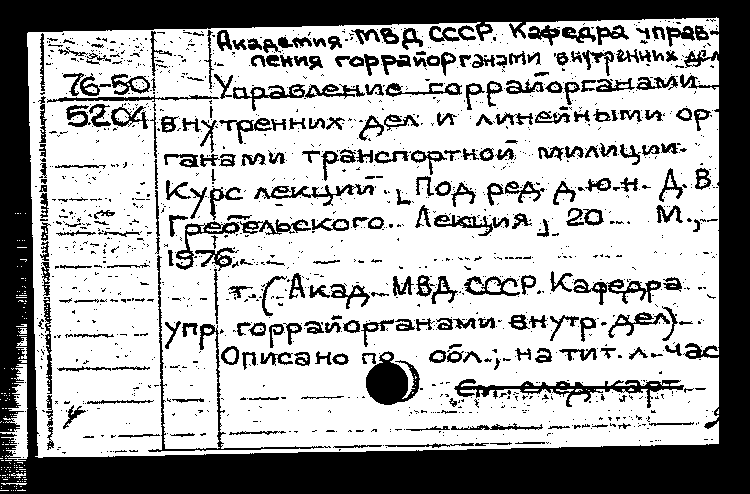 Академия МВД СССР. Кафедра управ-
ления горрайорганами внутренних дел
76-50 Управление горрайорганами
5204 внутренних дел и линейными ор-
ганами транспортной милиции.
Курс лекций. [Под ред. д.ю.н. Д.В.
Гребельского. Лекция] 20 М.,
1976.
т. (Акад. МВД СССР. Кафедра
упр. горрайорганами внутр. дел).
Описано по обл.; на тит. л. час
См. след. карт.